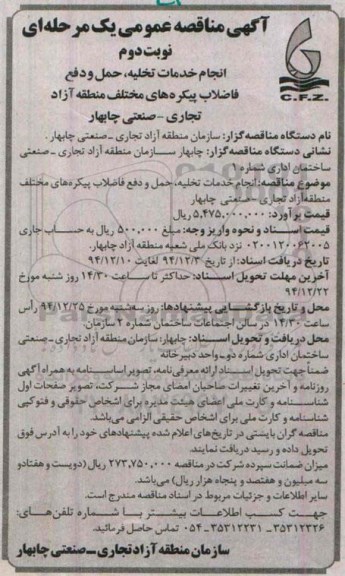 آگهی مناقصه عمومی یک مرحله‌ای
نوبت دوم
انجام خدمات تخلیه، حمل و دفع
فاضلاب پیکره‌های مختلف منطقه آزاد
تجاری - صنعتی چابهار
C.F.Z.
نام دستگاه مناقصه‌گزار: سازمان منطقه آزاد تجاری - صنعتی چابهار.
نشانی دستگاه مناقصه‌گزار: چابهار سازمان منطقه آزاد تجاری - صنعتی
ساختمان اداری شماره ۱
موضوع مناقصه: انجام خدمات تخلیه، حمل و دفع فاضلاب پیکره‌های مختلف
منطقه آزاد تجاری - صنعتی چابهار
قیمت برآورد: ۵,۴۷۵,۰۰۰,۰۰۰ ریال
قیمت اسناد و نحوه واریز وجه: مبلغ ۵۰۰,۰۰۰ ریال به حساب جاری
۰۲۰۰۱۲۰۰۶۲۰۰۵ نزد بانک ملی شعبه منطقه آزاد چابهار.
تاریخ دریافت اسناد: از تاریخ ۹۴/۱۲/۳ لغایت ۹۴/۱۲/۱۰
آخرین مهلت تحویل اسناد: حداکثر تا ساعت ۱۴/۳۰ روز شنبه مورخ
۹۴/۱۲/۲۲
محل و تاریخ بازگشایی پیشنهادها: روز سه‌شنبه مورخ ۹۴/۱۲/۲۵ رأس
ساعت ۱۴/۳۰ در سالن اجتماعات ساختمان شماره ۲ سازمان
محل دریافت و تحویل اسناد: چابهار، سازمان منطقه آزاد تجاری - صنعتی
ساختمان اداری شماره دو - واحد دبیرخانه
ضمناً جهت تحویل اسناد ارائه معرفی‌نامه، تصویر اساسنامه به همراه آگهی
روزنامه و آخرین تغییرات صاحبان امضای مجاز شرکت، تصویر صفحات اول
شناسنامه و کارت ملی اعضای هیئت مدیره برای اشخاص حقوقی و فتوکپی
شناسنامه و کارت ملی برای اشخاص حقیقی الزامی می‌باشد.
مناقصه گران بایستی در تاریخ‌های اعلام شده پیشنهادهای خود را به آدرس فوق
تحویل داده و رسید دریافت نمایند.
میزان ضمانت سپرده شرکت در مناقصه ۲۷۳,۷۵۰,۰۰۰ ریال (دویست و هفتادو
سه میلیون و هفتصد و پنجاه هزار ریال) می‌باشد.
سایر اطلاعات و جزئیات مربوط در اسناد مناقصه مندرج است.
جهت کسب اطلاعات بیشتر با شماره تلفن‌های:
۳۵۳۱۲۳۲۶ - ۳۵۳۱۲۲۳۱-۰۵۴ تماس حاصل فرمائید.
سازمان منطقه آزاد تجاری - صنعتی چابهار